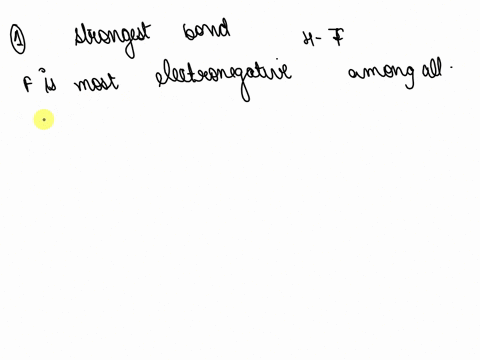 ① strongest bond H-F
F is most electronegative among all.